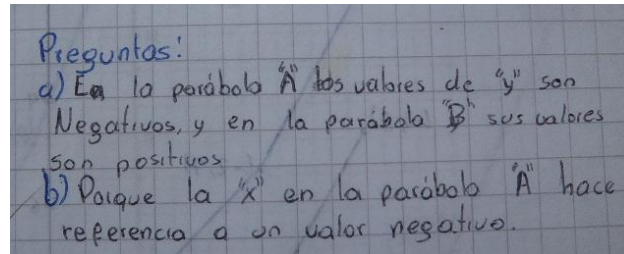 Preguntas:
a) En la parábola "A" los valores de "y" son
Negativos, y en la parábola "B" sus valores
son positivos
b) Porque la "x" en la parábola "A" hace
referencia a un valor negativo.